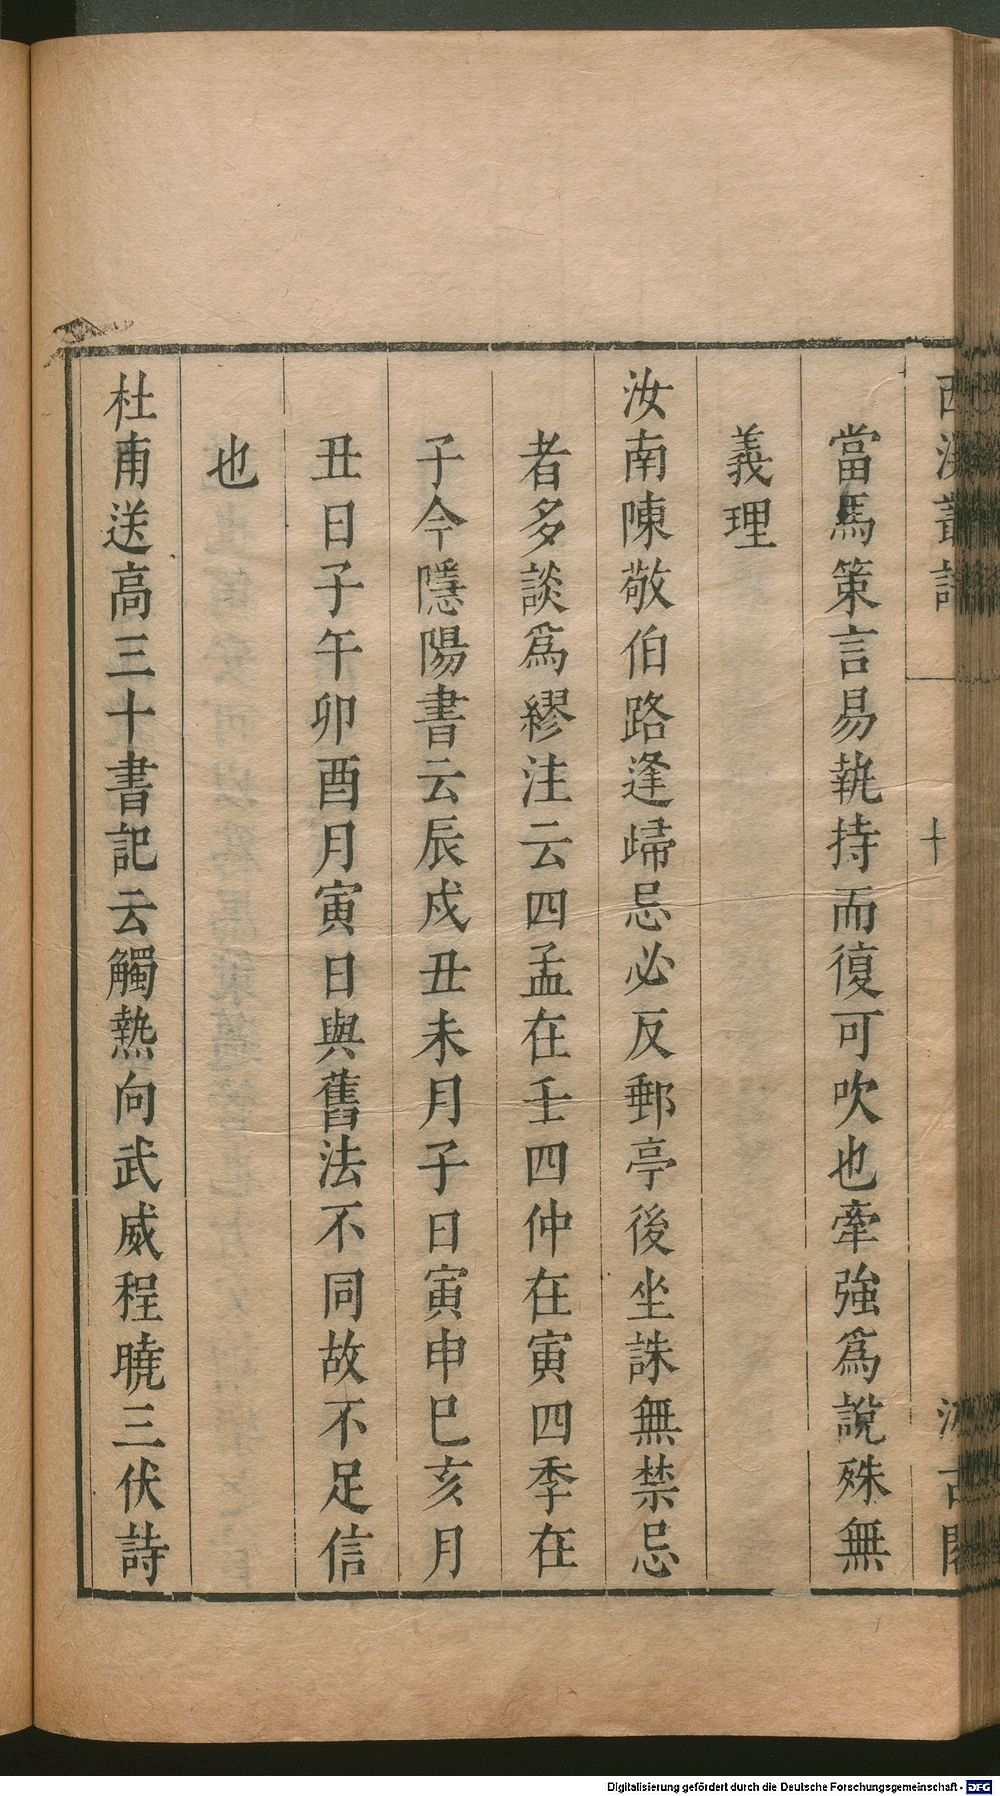 西溪叢語
十
汲古閣
當馬策言易執持而復可吹也牽強爲說殊無
義理
汝南陳敬伯路逢歸忌必反郵亭後坐誅無禁忌
者多談爲繆注云四孟在壬四仲在寅四季在
子今隱陽書云辰戍丑未月子日寅申巳亥月
丑日子午卯酉月寅日與舊法不同故不足信
也
杜甫送高三十書記云觸熱向武威程曉三伏詩
Digitalisierung gefördert durch die Deutsche Forschungsgemeinschaft - DFG